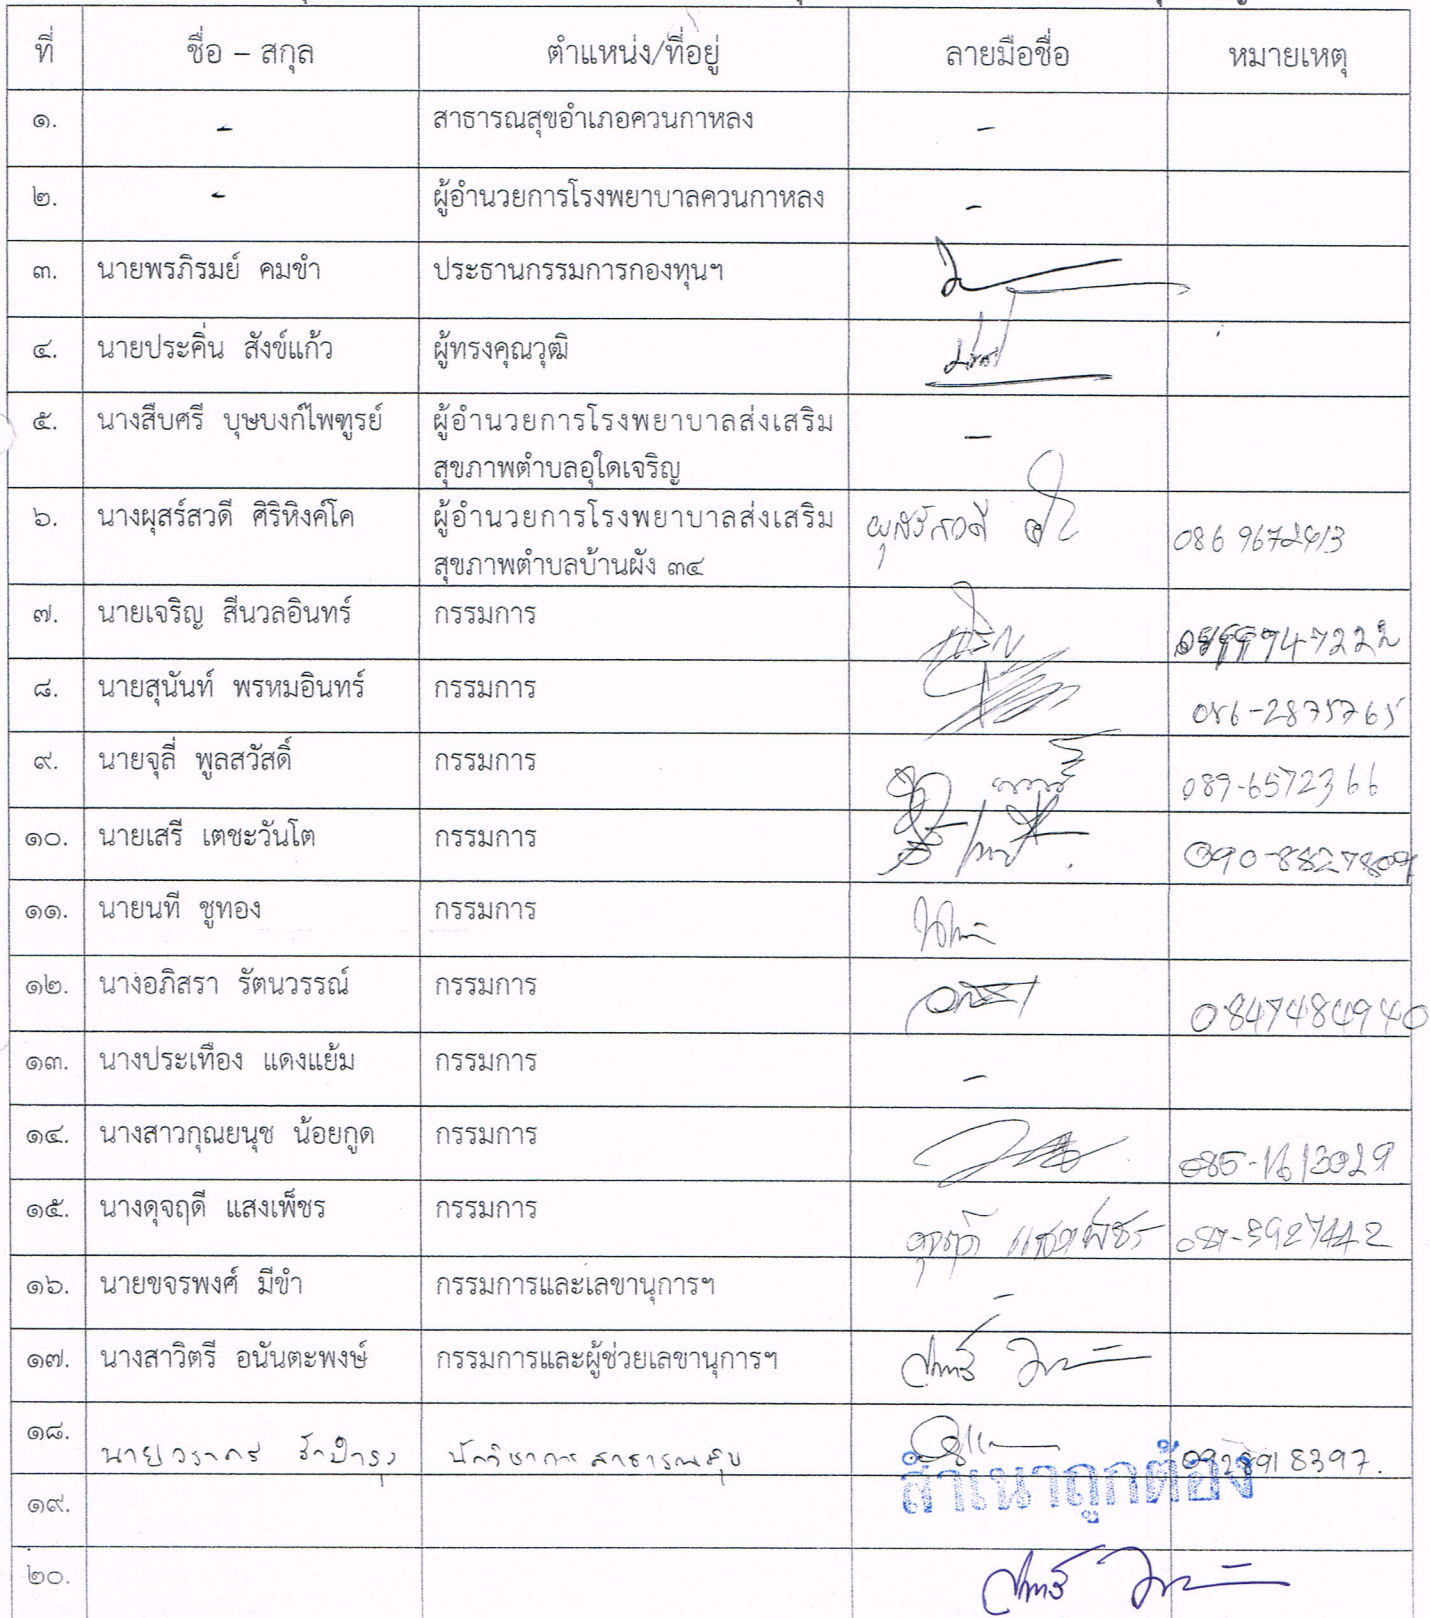 ที่ ชื่อ – สกุล ตำแหน่ง/ที่อยู่ ลายมือชื่อ หมายเหตุ
๑. - สาธารณสุขอำเภอควนกาหลง -
๒. - ผู้อำนวยการโรงพยาบาลควนกาหลง -
๓. นายพรภิรมย์ คมขำ ประธานกรรมการกองทุนฯ
๔. นายประคิ่น สังข์แก้ว ผู้ทรงคุณวุฒิ
๕. นางสืบศรี บุษบงก์ไพฑูรย์ ผู้อำนวยการโรงพยาบาลส่งเสริม -
สุขภาพตำบลอุใดเจริญ
๖. นางผุสร์สวดี ศิริหิงค์โค ผู้อำนวยการโรงพยาบาลส่งเสริม ผุสร์สวดี 086 9672413
สุขภาพตำบลบ้านผัง ๓๔
๗. นายเจริญ สีนวลอินทร์ กรรมการ เจริญ
๘. นายสุนันท์ พรหมอินทร์ กรรมการ 086-2875765
๙. นายจุลี่ พูลสวัสดิ์ กรรมการ 089-6572366
๑๐. นายเสรี เตชะวันโต กรรมการ 090-8827809
๑๑. นายนที ชูทอง กรรมการ
๑๒. นางอภิสรา รัตนวรรณ์ กรรมการ 0847484940
๑๓. นางประเทือง แดงแย้ม กรรมการ -
๑๔. นางสาวกุณยนุช น้อยกูด กรรมการ 085-1613029
๑๕. นางดุจฤดี แสงเพ็ชร กรรมการ ดุจฤดี แสงเพ็ชร
๑๖. นายขจรพงศ์ มีขำ กรรมการและเลขานุการฯ -
๑๗. นางสาวิตรี อนันตะพงษ์ กรรมการและผู้ช่วยเลขานุการฯ
๑๘. นายวรากร นักวิชาการสาธารณสุข 0928918397.
สำเนาถูกต้อง
๑๙.
๒๐.